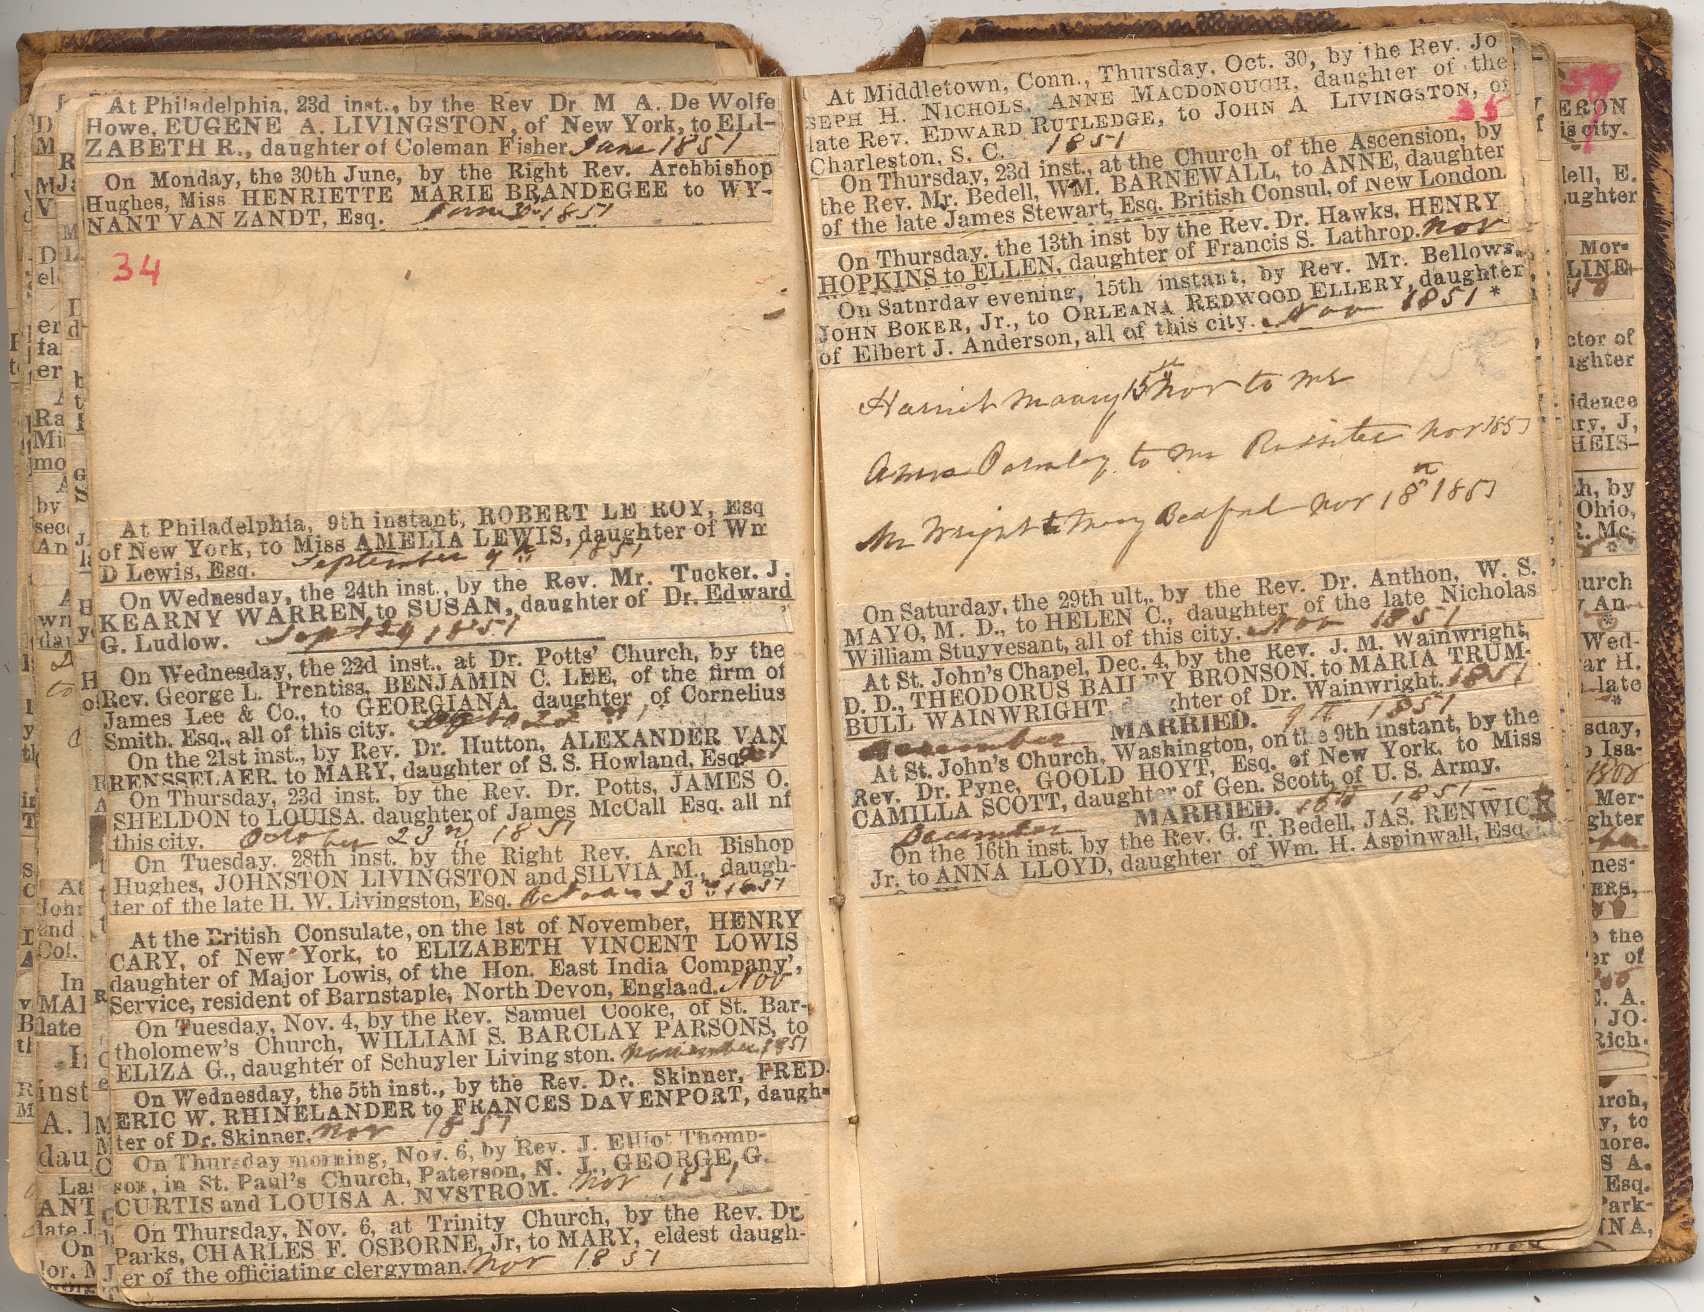 At Philadelphia, 23d inst., by the Rev Dr M A. De Wolfe
Howe, EUGENE A. LIVINGSTON, of New York, to ELI-
ZABETH R., daughter of Coleman Fisher June 1851
On Monday, the 30th June, by the Right Rev. Archbishop
Hughes, Miss HENRIETTE MARIE BRANDEGEE to WY-
NANT VAN ZANDT, Esq. June 30 1851
34
At Philadelphia, 9th instant, ROBERT LE ROY, Esq
of New York, to Miss AMELIA LEWIS, daughter of Wm
D Lewis, Esq. September 9th 1851
On Wednesday, the 24th inst., by the Rev. Mr. Tucker, J.
KEARNY WARREN to SUSAN, daughter of Dr. Edward
G. Ludlow. Sept 24 1851
On Wednesday, the 22d inst., at Dr. Potts' Church, by the
Rev. George L. Prentiss, BENJAMIN C. LEE, of the firm of
James Lee & Co., to GEORGIANA, daughter of Cornelius
Smith, Esq., all of this city.
On the 21st inst., by Rev. Dr. Hutton, ALEXANDER VAN
RENSSELAER, to MARY, daughter of S. S. Howland, Esq.
On Thursday, 23d inst. by the Rev. Dr. Potts, JAMES O.
SHELDON to LOUISA, daughter of James McCall Esq. all of
this city. October 23rd 1851
On Tuesday, 28th inst. by the Right Rev. Arch Bishop
Hughes, JOHNSTON LIVINGSTON and SILVIA M., daugh-
ter of the late H. W. Livingston, Esq. October 23rd 1851
At the British Consulate, on the 1st of November, HENRY
CARY, of New York, to ELIZABETH VINCENT LOWIS
daughter of Major Lowis, of the Hon. East India Company',
Service, resident of Barnstaple, North Devon, England. Nov
On Tuesday, Nov. 4, by the Rev. Samuel Cooke, of St. Bar-
tholomew's Church, WILLIAM S. BARCLAY PARSONS, to
ELIZA G., daughter of Schuyler Livingston. November 1851
On Wednesday, the 5th inst., by the Rev. Dr. Skinner, FRED-
ERIC W. RHINELANDER to FRANCES DAVENPORT, daugh-
ter of Dr. Skinner. Nov 1851
On Thursday morning, Nov. 6, by Rev. J. Elliot Thomp-
son, in St. Paul's Church, Paterson, N. J., GEORGE G.
CURTIS and LOUISA A. NYSTROM. Nov 1851
On Thursday, Nov. 6, at Trinity Church, by the Rev. Dr.
Parks, CHARLES F. OSBORNE, Jr, to MARY, eldest daugh-
er of the officiating clergyman. Nov 1851
At Middletown, Conn., Thursday, Oct. 30, by the Rev. Jo
SEPH H. NICHOLS, ANNE MACDONOUGH, daughter of the
late Rev. EDWARD RUTLEDGE, to JOHN A LIVINGSTON, of
Charleston, S. C. 1851
35
On Thursday, 23d inst., at the Church of the Ascension, by
the Rev. Mr. Bedell, WM. BARNEWALL, to ANNE, daughter
of the late James Stewart, Esq. British Consul, of New London.
On Thursday, the 13th inst by the Rev. Dr. Hawks, HENRY
HOPKINS to ELLEN, daughter of Francis S. Lathrop. Nov
On Saturday evening, 15th instant, by Rev. Mr. Bellows,
JOHN BOKER, Jr., to ORLEANA REDWOOD ELLERY, daughter
of Elbert J. Anderson, all of this city. Nov 1851 *
Harriet 15th Nov to Mr
Anna to Mr Nov 1851
Mr Wright to Mary Bedford Nov 18th 1851
On Saturday, the 29th ult., by the Rev. Dr. Anthon, W. S.
MAYO, M. D., to HELEN C., daughter of the late Nicholas
William Stuyvesant, all of this city. Nov 1851
At St. John's Chapel, Dec. 4, by the Rev. J. M. Wainwright,
D. D., THEODORUS BAILEY BRONSON, to MARIA TRUM-
BULL WAINWRIGHT daughter of Dr. Wainwright. 1851
December MARRIED. 9th 1851
At St. John's Church, Washington, on the 9th instant, by the
Rev. Dr. Pyne, GOOLD HOYT, Esq. of New York, to Miss
CAMILLA SCOTT, daughter of Gen. Scott, of U. S. Army.
December MARRIED. 16th 1851
On the 16th inst. by the Rev. G. T. Bedell, JAS. RENWICK
Jr. to ANNA LLOYD, daughter of Wm. H. Aspinwall, Esq.